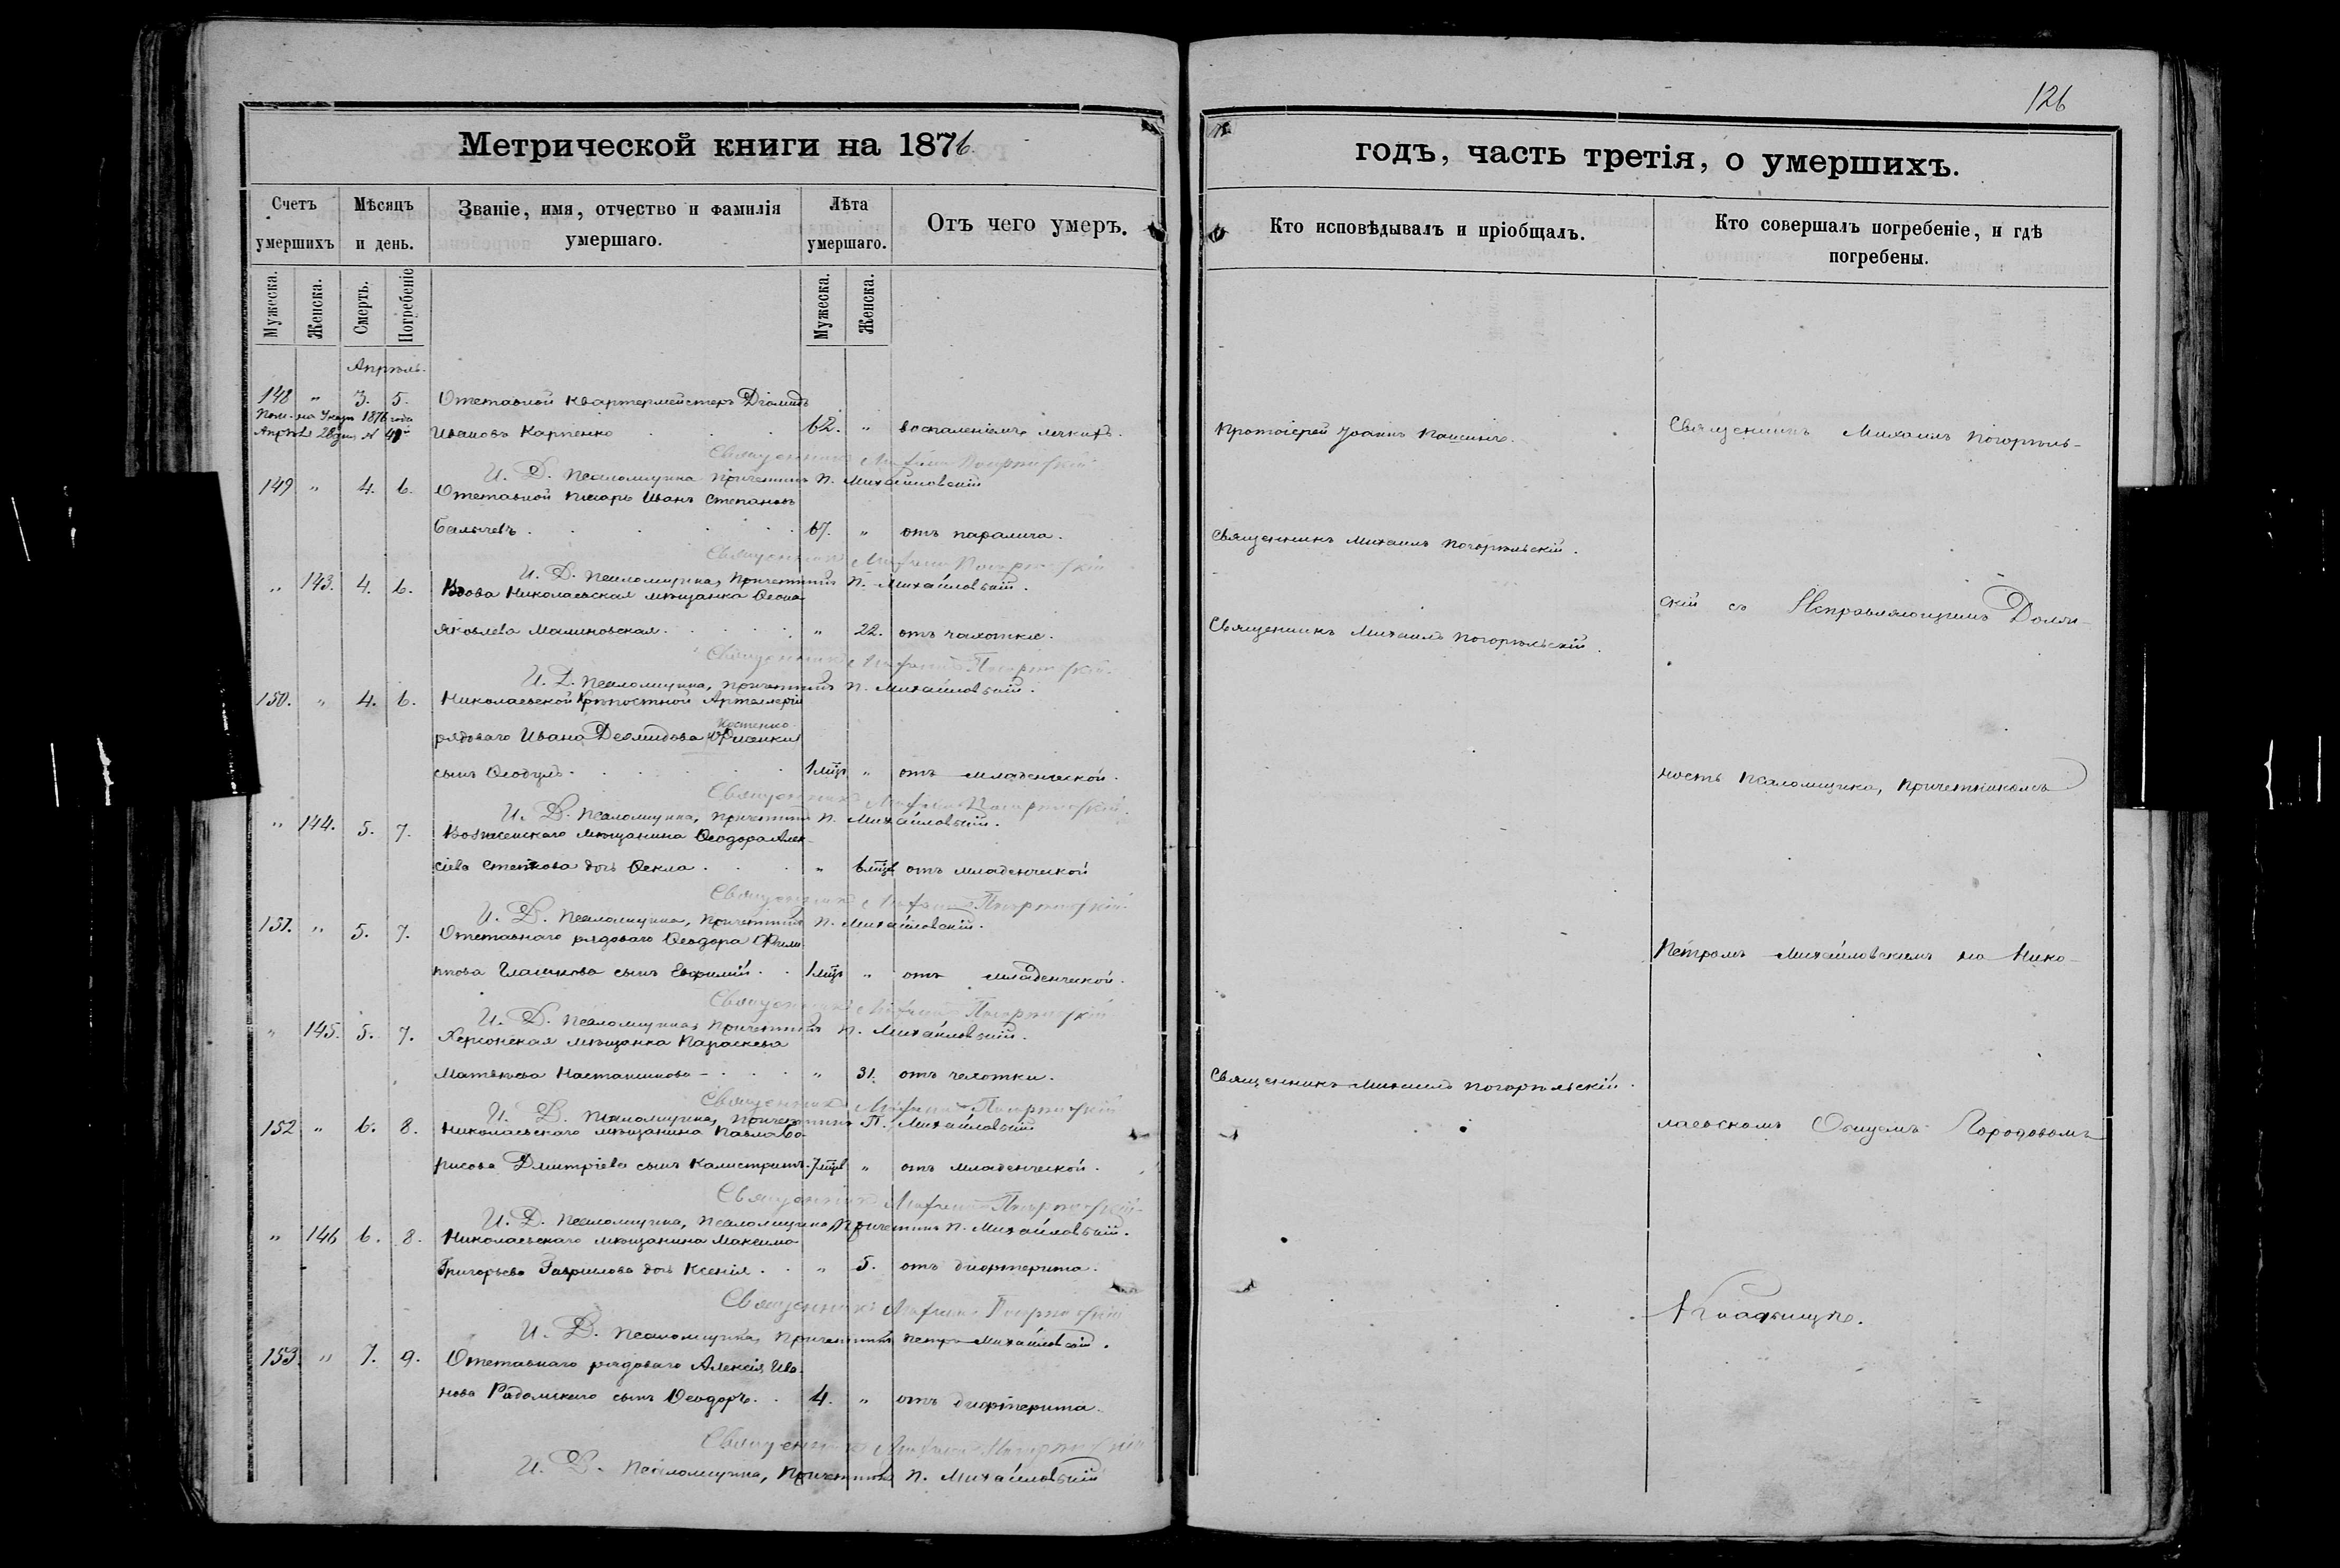 126
Метрической книги на 1876
годъ, часть третія, о умершихъ.
Счетъ умершихъ
Мѣсяцъ и день.
Званіе, имя, отчество и фамилія умершаго.
Лѣта умершаго.
Отъ чего умеръ.
Кто исповѣдывалъ и пріобщалъ.
Кто совершалъ погребеніе, и гдѣ погребены.
Мужеска. Женска. Смерть. Погребеніе Мужеска. Женска.
Апрѣль.
148 " 3. 5. Отставной квартермейстеръ Діомидъ
1876 года
Ивановъ Карпенко 62. " воспаленіемъ легкихъ. Протоіерей Іоаннъ Священникъ Михаилъ Погорѣль-
Священникъ Михаилъ Погорѣльскій
И. Д. Псаломщика Причетникъ П. Михайловскій
149 " 4. 6. Отставной писарь Иванъ Степановъ
Балычевъ 67. " отъ паралича. Священникъ Михаилъ Погорѣльскій.
Священникъ Михаилъ Погорѣльскій
И. Д. Псаломщика, Причетникъ П. Михайловскій.
" 143. 4. 6. Вдова Николаевская мѣщанка
скій съ Исправляющимъ Долж-
Яковлева Малиновская " 22. отъ чахотки. Священникъ Михаилъ Погорѣльскій.
Священникъ Михаилъ Погорѣльскій
И. Д. Псаломщика, Причетникъ П. Михайловскій.
150. " 4. 6. Николаевской Крѣпостной Артиллеріи
Костенко
рядоваго Ивана Деомидова
сынъ Ѳеодулъ 1 мцъ " отъ младенческой. ность Псаломщика, Причетникомъ
Священникъ Михаилъ Погорѣльскій
И. Д. Псаломщика, Причетникъ П. Михайловскій.
" 144. 5. 7. Вознесенскаго мѣщанина Ѳеодора Алек-
сіева дочь Ѳекла " 6 мцъ отъ младенческой
Священникъ Михаилъ Погорѣльскій
И. Д. Псаломщика, Причетникъ П. Михайловскій.
151. " 5. 7. Отставнаго рядоваго Ѳеодора Фили-
Петромъ Михайловскимъ на Нико-
ппова сынъ Евфимій 1 мцъ " отъ младенческой.
Священникъ Михаилъ Погорѣльскій
И. Д. Псаломщика, Причетникъ П. Михайловскій.
" 145. 5. 7. Херсонская мѣщанка Параскева
" 31. отъ чахотки. Священникъ Михаилъ Погорѣльскій.
Священникъ Михаилъ Погорѣльскій
И. Д. Псаломщика, Причетникъ П. Михайловскій
152 " 6. 8. Николаевскаго мѣщанина Павла Бо-
лаевскомъ Общемъ Городовомъ
рисова Дмитріева сынъ Калистратъ 7 мцъ " отъ младенческой.
Священникъ Михаилъ Погорѣльскій
И. Д. Псаломщика, Псаломщика, Причетникъ П. Михайловскій.
" 146 6. 8. Николаевскаго мѣщанина Максима
Григорьева Гаврилова дочь Ксенія " 5. отъ дифтерита.
Священникъ Михаилъ Погорѣльскій
Кладбищѣ.
И. Д. Псаломщика, Причетникъ Петръ Михайловскій.
153. " 7. 9. Отставнаго рядоваго Алексія Ива-
нова Радомскаго сынъ Ѳеодоръ 4. " отъ дифтерита.
Священникъ Михаилъ Погорѣльскій
И. Д. Псаломщика, Причетникъ П. Михайловскій